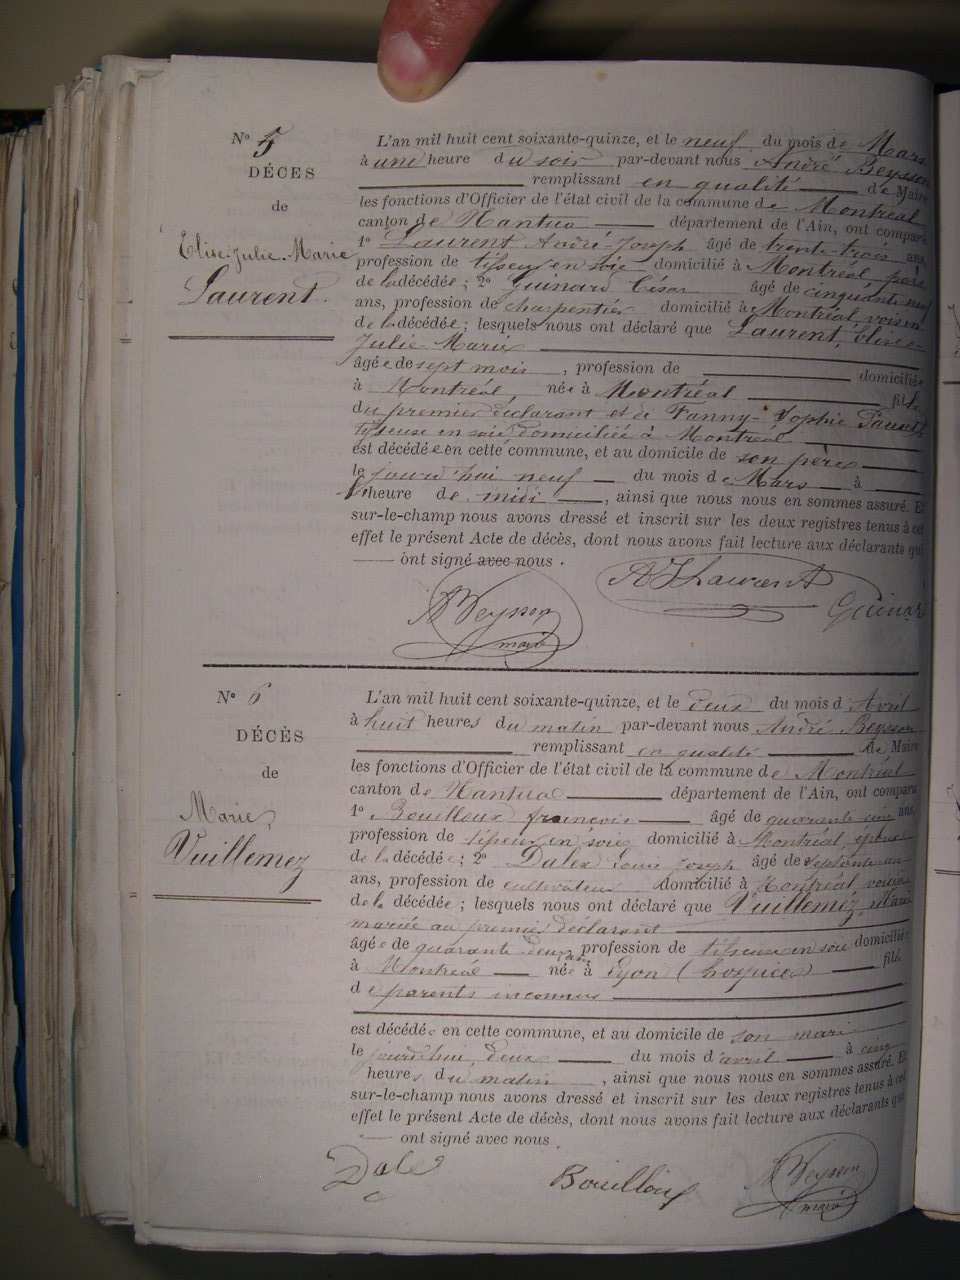 N° 5
DÉCES
de
Elise-Julie-Marie
Laurent.
L'an mil huit cent soixante-quinze, et le neuf du mois de Mars
à une heure du soir par-devant nous André Beysson
remplissant en qualité de Maire
les fonctions d'Officier de l'état civil de la commune de Montréal
canton de Nantua département de l'Ain, ont comparu
1° Laurent André-Joseph âgé de trente-trois ans,
profession de tisseur en soie domicilié à Montréal père
de la décédée ; 2° Guinard César âgé de cinquante neuf
ans, profession de charpentier domicilié à Montréal voisin
de la décédée ; lesquels nous ont déclaré que Laurent, Elise-
Julie Marie
âgée de sept mois , profession de domiciliée
à Montréal, née à Montréal fille
du premier déclarant et de Fanny-Sophie
tisseuse en soie domiciliée à Montréal
est décédée en cette commune, et au domicile de son père
le jourd'hui neuf du mois de Mars à
heure de midi , ainsi que nous nous en sommes assuré. Et
sur-le-champ nous avons dressé et inscrit sur les deux registres tenus à cet
effet le présent Acte de décès, dont nous avons fait lecture aux déclarants qui
ont signé avec nous .
AJ Laurent
Guinar
A Beysson
maire
N° 6
DÉCÈS
de
Marie
Vuillemez
L'an mil huit cent soixante-quinze, et le deux du mois d'Avril
à huit heures du matin par-devant nous André Beysson
remplissant en qualité de Maire
les fonctions d'Officier de l'état civil de la commune de Montréal
canton de Nantua département de l'Ain, ont comparu
1° Bouilloux françois âgé de quarante cinq ans,
profession de tisseur en soie domicilié à Montréal, époux
de la décédée ; 2° Dalex Louis Joseph âgé de septante un
ans, profession de cultivateur domicilié à Montréal, voisin
de la décédée ; lesquels nous ont déclaré que Vuillemez, Marie
mariée au premier déclarant
âgée de quarante deux ans profession de tisseuse en soie domiciliée
à Montréal née à Lyon (hospices) fille
de parents inconnus
est décédée en cette commune, et au domicile de son mari
le jourd'hui deux du mois d'avril à cinq
heures du matin , ainsi que nous nous en sommes assuré. Et
sur-le-champ nous avons dressé et inscrit sur les deux registres tenus à cet
effet le présent Acte de décès, dont nous avons fait lecture aux déclarants qui
ont signé avec nous .
Dalex
Bouilloux
A Beysson
maire